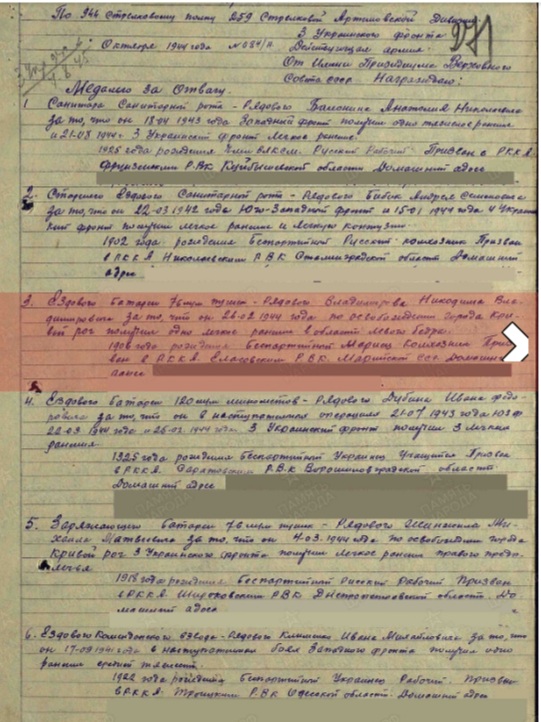 По 346 стрелковому полку 259 Стрелковой Артемовской Дивизии
3 Украинского фронта
Октября 1944 года № 034/н Действующая армия.
От Имени Президиума Верховного
Совета СССР Награждаю:
Медалью За Отвагу.
1. Санитара Санитарной роты - Рядового Анатолия Николаевича
за то, что он 1943 года Западный фронт получил одно тяжелое ранение
и 21-08 1944 г 3 Украинский фронт легкое ранение.
1925 года рождения Член ВЛКСМ. Русский Рабочий Призван в РККА
Фрунзенским РВК Куйбышевской области Домашний адрес
2. Ездового Санитарной роты - Рядового Бибик Андрея Семеновича
за то, что он 22-03 1942 года Юго-Западный фронт и 15-01 1944 года 4 Украин-
ский фронт получил легкое ранение и легкую контузию.
1902 года рождения беспартийный Русский Призван
в РККА Николаевским РВК Сталинградской области Домашний
адрес
3. Ездового батареи 76 мм пушек - Рядового Владимирова Никодима Вла-
димировича за то, что он 26-02 1944 года по освобождению города Кри-
вой рог получил одно легкое ранение в области левого бедра.
1908 года рождения беспартийный Мариец Колхозник Приз-
ван в РККА РВК Марийской ССР Домашний
адрес
4. Ездового батареи 120 мм минометов - Рядового Дубина Ивана Федо-
ровича за то, что он в наступательной операции 21-07 1943 года ЮЗФ
22-03 1944 года и 26-02-1944 года 3 Украинский фронт получил 3 легких
ранения.
1925 года рождения беспартийный Украинец Учащийся Призван
в РККА РВК Ворошиловградской области
Домашний адрес
5. Заряжающего батареи 76 мм пушек - Рядового Ми-
хаила Матвеевича за то, что он 4-03-1944 года по освобождению города
Кривой рог 3 Украинского фронта получил легкое ранение правого предп-
лечья
1918 года рождения беспартийный Русский Рабочий Призван
в РККА Широковским РВК Днепропетровской области. До-
машний адрес
6. Ездового Комендантского взвода - Рядового Ивана Михайловича за то, что
он 17-09 1941 года в наступательных боях Западного фронта получил одно
ранение средней тяжести.
1922 года рождения беспартийный Украинец Рабочий. Призван
в РККА Троицким РВК Одесской области. Домашний адрес